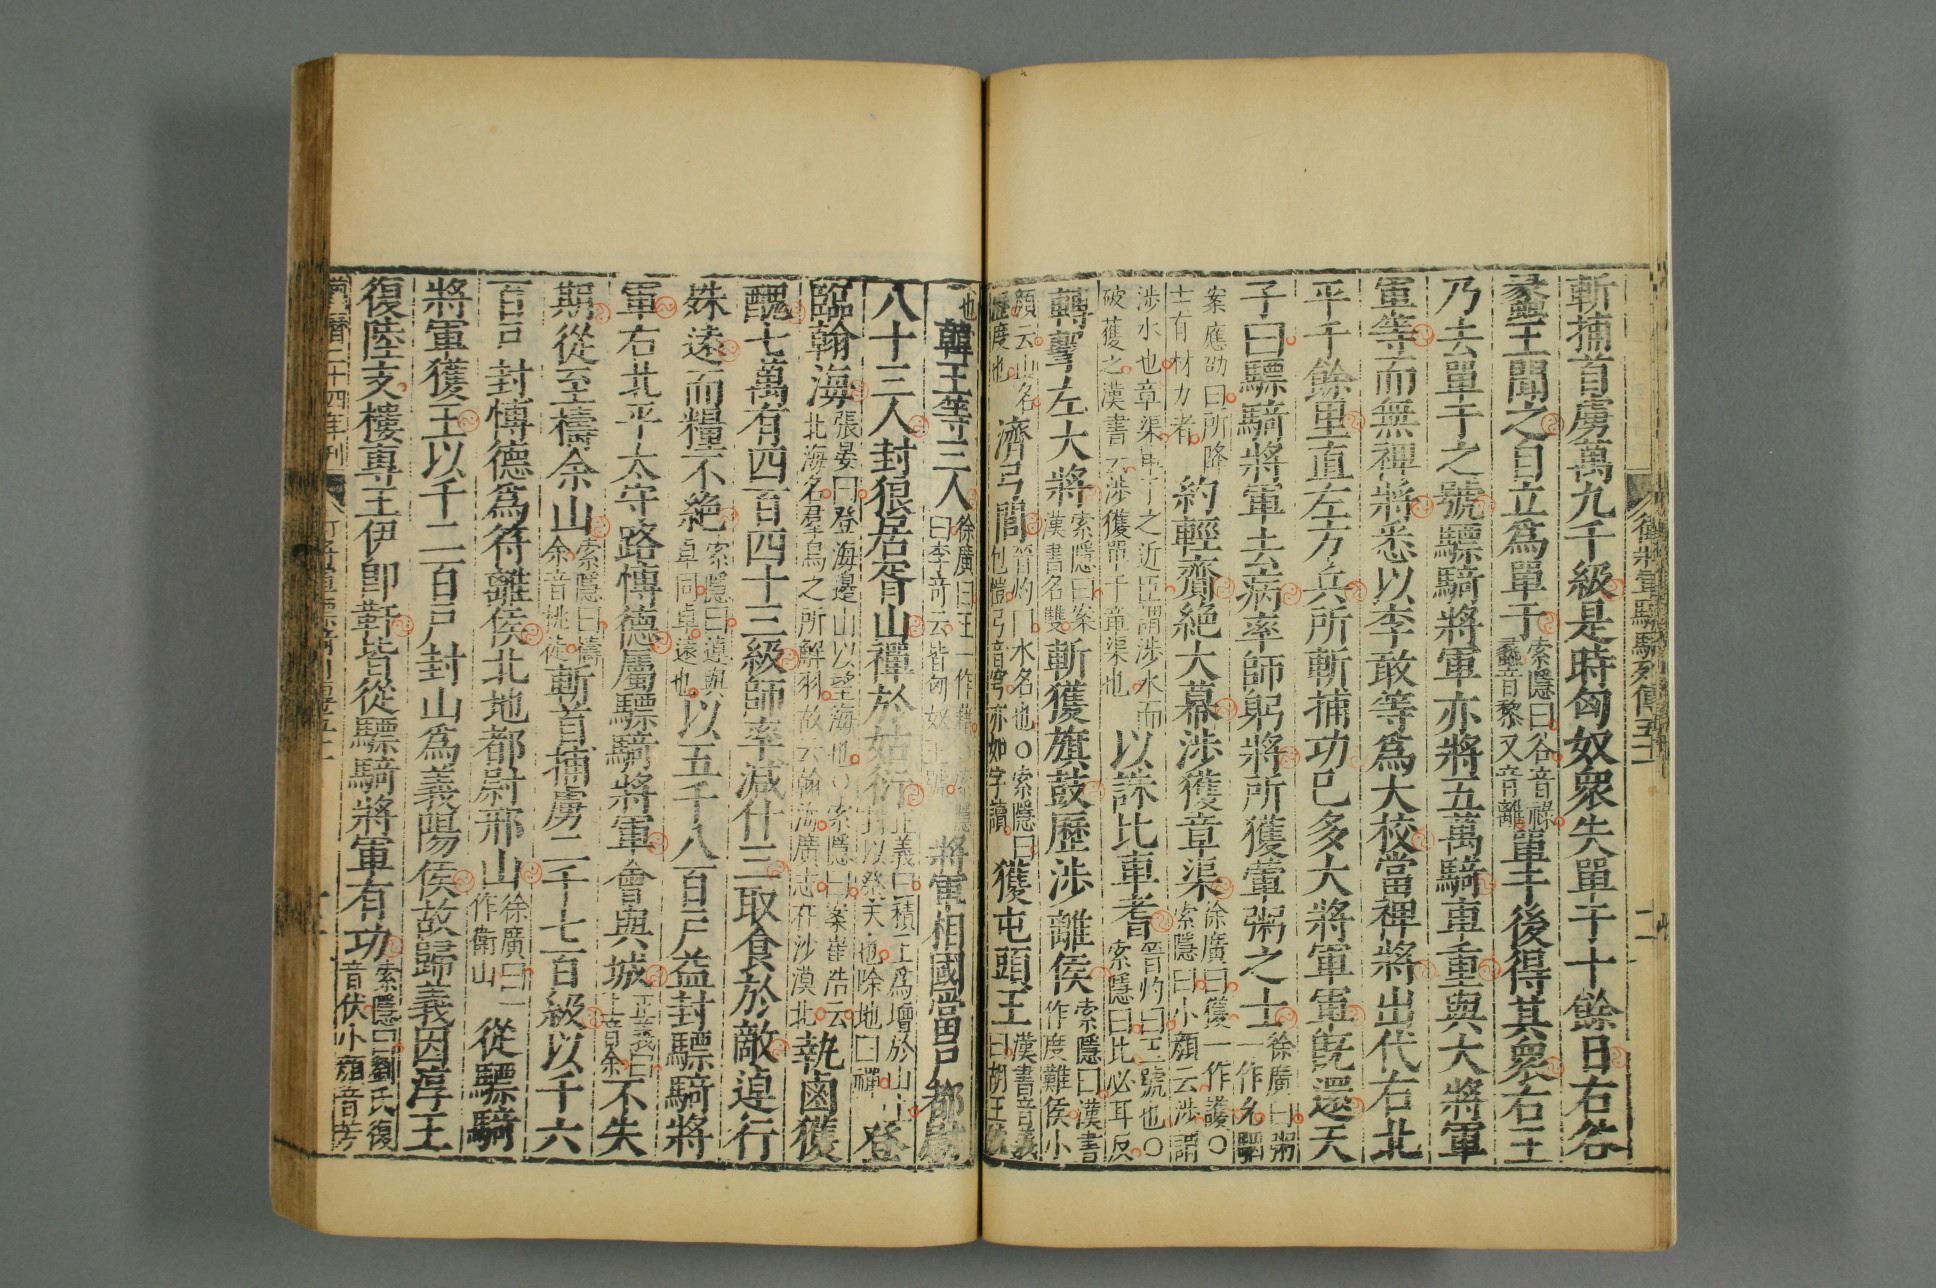 衛將軍驃騎列傳五十一
斬捕首虜萬九千級是時匈奴衆失單于十餘日右谷
蠡王聞之自立爲單于索隱曰谷音祿蠡音黎又音離單于後得其衆右王
乃去單于之號驃騎將軍亦將五萬騎車重與大將軍
軍等而無禆將悉以李敢等爲大校當禆將出代右北
平千餘里直左方兵所斬捕功已多大將軍軍旣還天
子曰驃騎將軍去病率師躬將所獲葷粥之士徐廣曰粥一作允駰
案應劭曰所降士有材力者約輕齎絕大幕涉獲章渠徐廣曰獲一作護○索隱曰小顏云涉謂
涉水也章渠單于之近臣謂涉水而破獲之漢書云涉獲單于章渠也以誅比車耆晉灼曰王號也○索隱曰比必耳反
轉擊左大將索隱曰案漢書名雙斬獲旗鼓歷涉離侯索隱曰漢書作度難侯小
顏云山名歷度也濟弓閭晉灼曰水名也○索隱曰包愷弓音穹亦如字讀獲屯頭王漢書音義曰胡王號
也韓王等三人徐廣曰王一作藉索隱曰李奇云皆匈奴王號將軍相國當戶都尉
八十三人封狼居胥山禪於姑衍正義曰積土爲壇於山上封以祭天也除地曰禪登
臨翰海張晏曰登海邊山以望海也○索隱曰案崔浩云北海名羣鳥之所解羽故云翰海廣志在沙漠北執鹵獲
醜七萬有四百四十三級師率減什三取食於敵逴行
姝遠而糧不絕索隱曰逴與卓同卓遠也以五千八百戶益封驃騎將
軍右北平太守路博德屬驃騎將軍會與城正義曰上音余不失
期從至檮余山索隱曰檮余音桃徒斬首捕虜二千七百級以千六
百戶封博德爲符離侯北地都尉邢山徐廣曰一作衛山從驃騎
將軍獲王以千二百戶封山爲義陽侯故歸義因淳王
復陸支樓專王伊卽靬皆從驃騎將軍有功索隱曰劉氏復音伏小顏音芳
萬曆二十四年刊